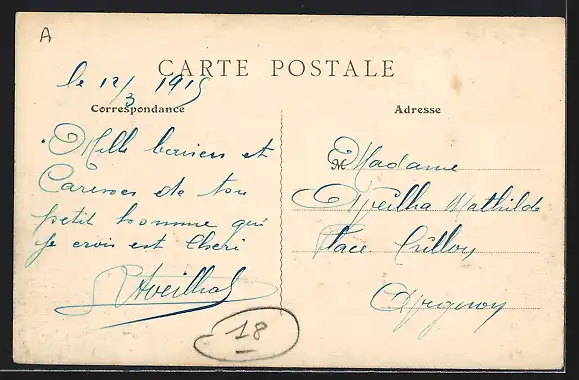 A
CARTE POSTALE
le 12/3 1915
Correspondance
Adresse
Mille baisers et
Caresses de ton
petit homme qui
je crois est Cheri
M
Madame
Mathilde
Place Crillon
18